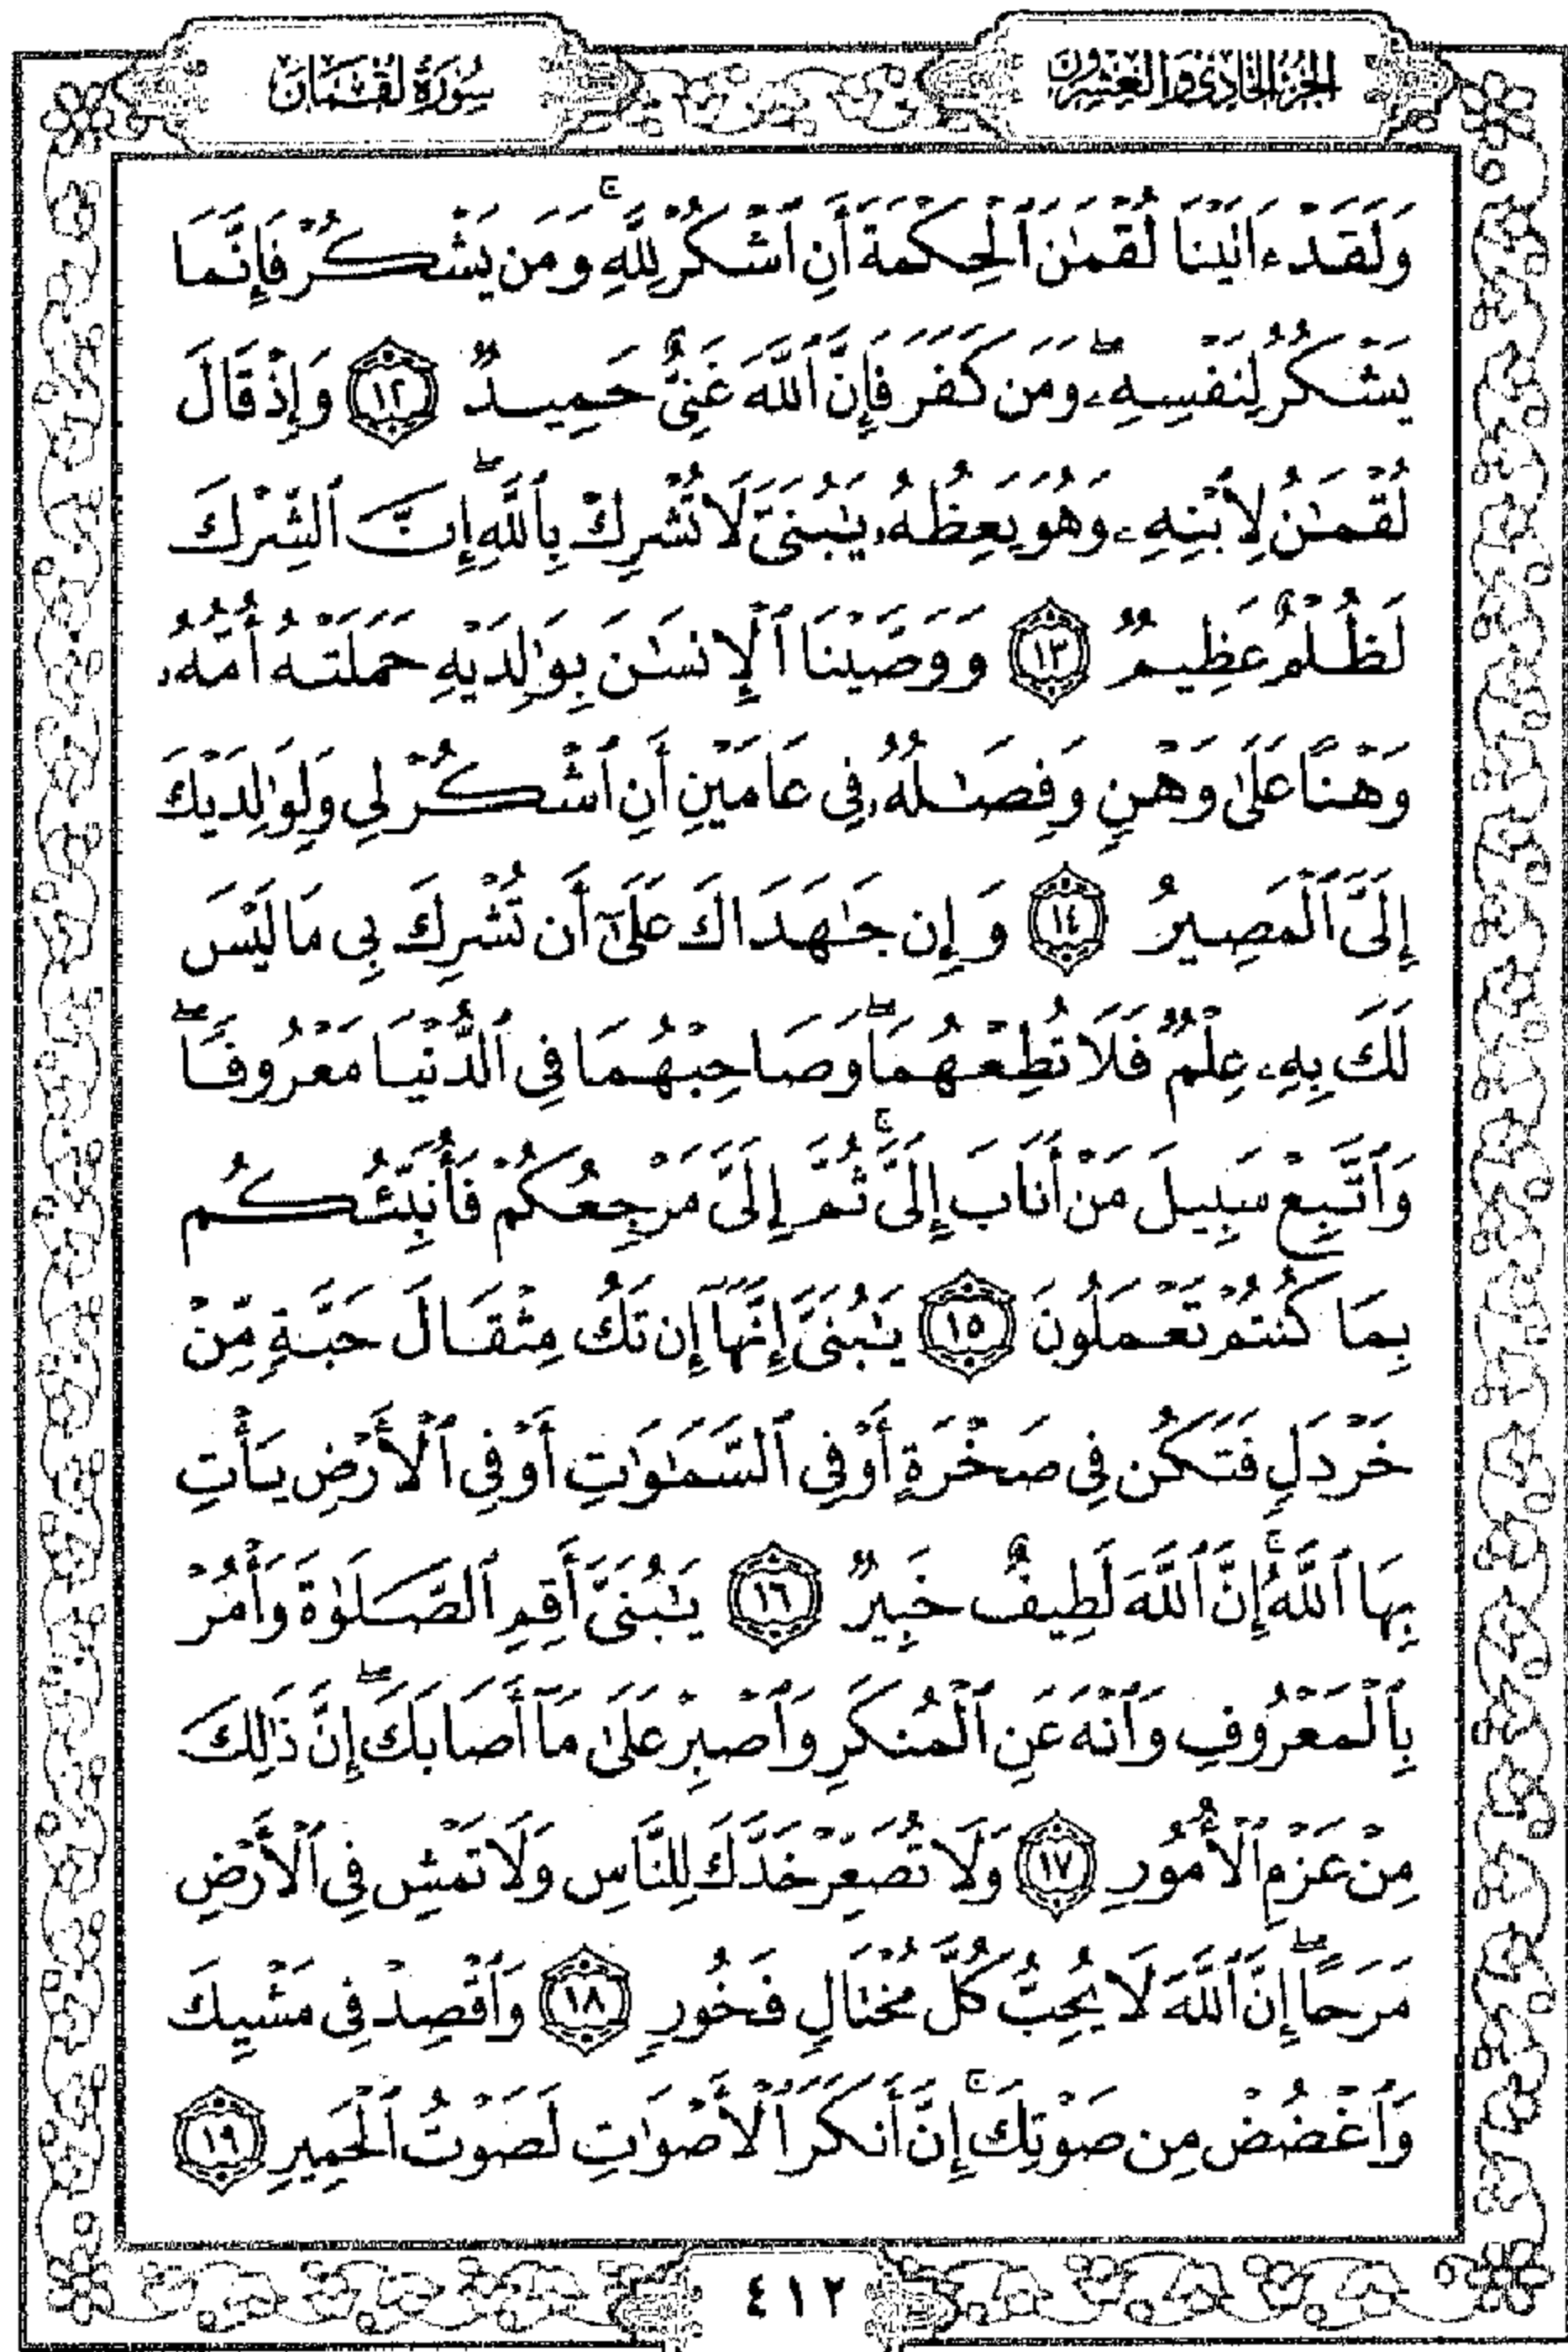 الجزء الحادي والعشرون
سورة لقمان
وَلَقَدْ ءَاتَيْنَا لُقْمَٰنَ ٱلْحِكْمَةَ أَنِ ٱشْكُرْ لِلَّهِۚ وَمَن يَشْكُرْ فَإِنَّمَا
يَشْكُرُ لِنَفْسِهِۦۖ وَمَن كَفَرَ فَإِنَّ ٱللَّهَ غَنِىٌّ حَمِيدٌ ١٢ وَإِذْ قَالَ
لُقْمَٰنُ لِٱبْنِهِۦ وَهُوَ يَعِظُهُۥ يَٰبُنَىَّ لَا تُشْرِكْ بِٱللَّهِۖ إِنَّ ٱلشِّرْكَ
لَظُلْمٌ عَظِيمٌ ١٣ وَوَصَّيْنَا ٱلْإِنسَٰنَ بِوَٰلِدَيْهِ حَمَلَتْهُ أُمُّهُۥ
وَهْنًا عَلَىٰ وَهْنٍ وَفِصَٰلُهُۥ فِى عَامَيْنِ أَنِ ٱشْكُرْ لِى وَلِوَٰلِدَيْكَ
إِلَىَّ ٱلْمَصِيرُ ١٤ وَإِن جَٰهَدَاكَ عَلَىٰٓ أَن تُشْرِكَ بِى مَا لَيْسَ
لَكَ بِهِۦ عِلْمٌ فَلَا تُطِعْهُمَاۖ وَصَاحِبْهُمَا فِى ٱلدُّنْيَا مَعْرُوفًاۖ
وَٱتَّبِعْ سَبِيلَ مَنْ أَنَابَ إِلَىَّۚ ثُمَّ إِلَىَّ مَرْجِعُكُمْ فَأُنَبِّئُكُم
بِمَا كُنتُمْ تَعْمَلُونَ ١٥ يَٰبُنَىَّ إِنَّهَآ إِن تَكُ مِثْقَالَ حَبَّةٍ مِّنْ
خَرْدَلٍ فَتَكُن فِى صَخْرَةٍ أَوْ فِى ٱلسَّمَٰوَٰتِ أَوْ فِى ٱلْأَرْضِ يَأْتِ
بِهَا ٱللَّهُۚ إِنَّ ٱللَّهَ لَطِيفٌ خَبِيرٌ ١٦ يَٰبُنَىَّ أَقِمِ ٱلصَّلَوٰةَ وَأْمُرْ
بِٱلْمَعْرُوفِ وَٱنْهَ عَنِ ٱلْمُنكَرِ وَٱصْبِرْ عَلَىٰ مَآ أَصَابَكَۖ إِنَّ ذَٰلِكَ
مِنْ عَزْمِ ٱلْأُمُورِ ١٧ وَلَا تُصَعِّرْ خَدَّكَ لِلنَّاسِ وَلَا تَمْشِ فِى ٱلْأَرْضِ
مَرَحًاۖ إِنَّ ٱللَّهَ لَا يُحِبُّ كُلَّ مُخْتَالٍ فَخُورٍ ١٨ وَٱقْصِدْ فِى مَشْيِكَ
وَٱغْضُضْ مِن صَوْتِكَۚ إِنَّ أَنكَرَ ٱلْأَصْوَٰتِ لَصَوْتُ ٱلْحَمِيرِ ١٩
٤١٢